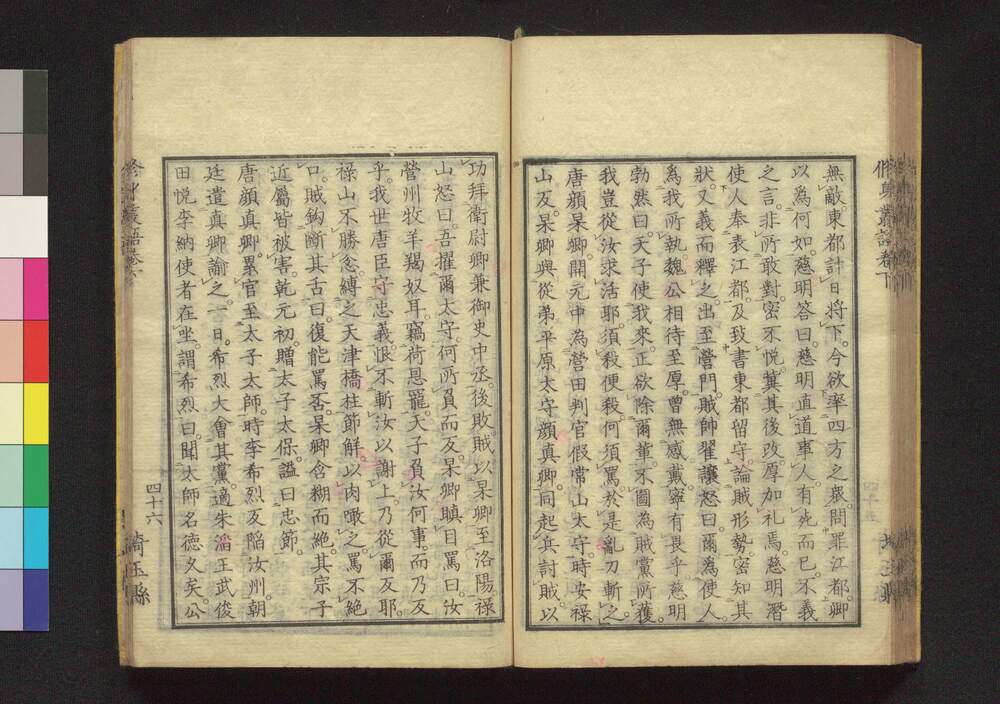 無敵東都計日将下今欲率四方之衆問罪江都卿
以為何如慈明答曰慈明直道事人有死而已不義
之言非所敢對密不悦冀其後改厚加礼焉慈明潜
使人奉表江都及致書東都留守論賊形勢密知其
状又義而釋之出至營門賊帥翟讓怒曰爾為使人
為我所執魏公相待至厚曽無感戴寧有畏乎慈明
勃然曰天子使我來正欲除爾輩不圖為賊黨所獲
我豈從汝求活耶須殺便殺何須罵於是亂刀斬之
唐顔杲卿開元中為營田判官假常山太守時安禄
山反杲卿與從弟平原太守顔真卿同起兵討賊以
功拜衛尉卿兼御史中丞後敗賊以杲卿至洛陽禄
山怒曰吾擢爾太守何所負而反杲卿瞋目罵曰汝
營州牧羊羯奴耳竊荷恩寵天子負汝何事而乃反
乎我世唐臣守忠義恨不斬汝以謝上乃從爾反耶
禄山不勝忿縛之天津橋柱節解以肉噉之罵不絶
口賊鈎斷其舌曰復能罵否杲卿含糊而絶其宗子
近屬皆被害乾元初贈太子太保謚曰忠節
唐顔真卿累官至太子太師時李希烈反陥汝州朝
廷遣真卿諭之一日希烈大會其黨適朱滔王武俊
田悦李納使者在坐謂希烈曰聞太師名德久矣公
修身叢語卷下
四十六
埼玉縣